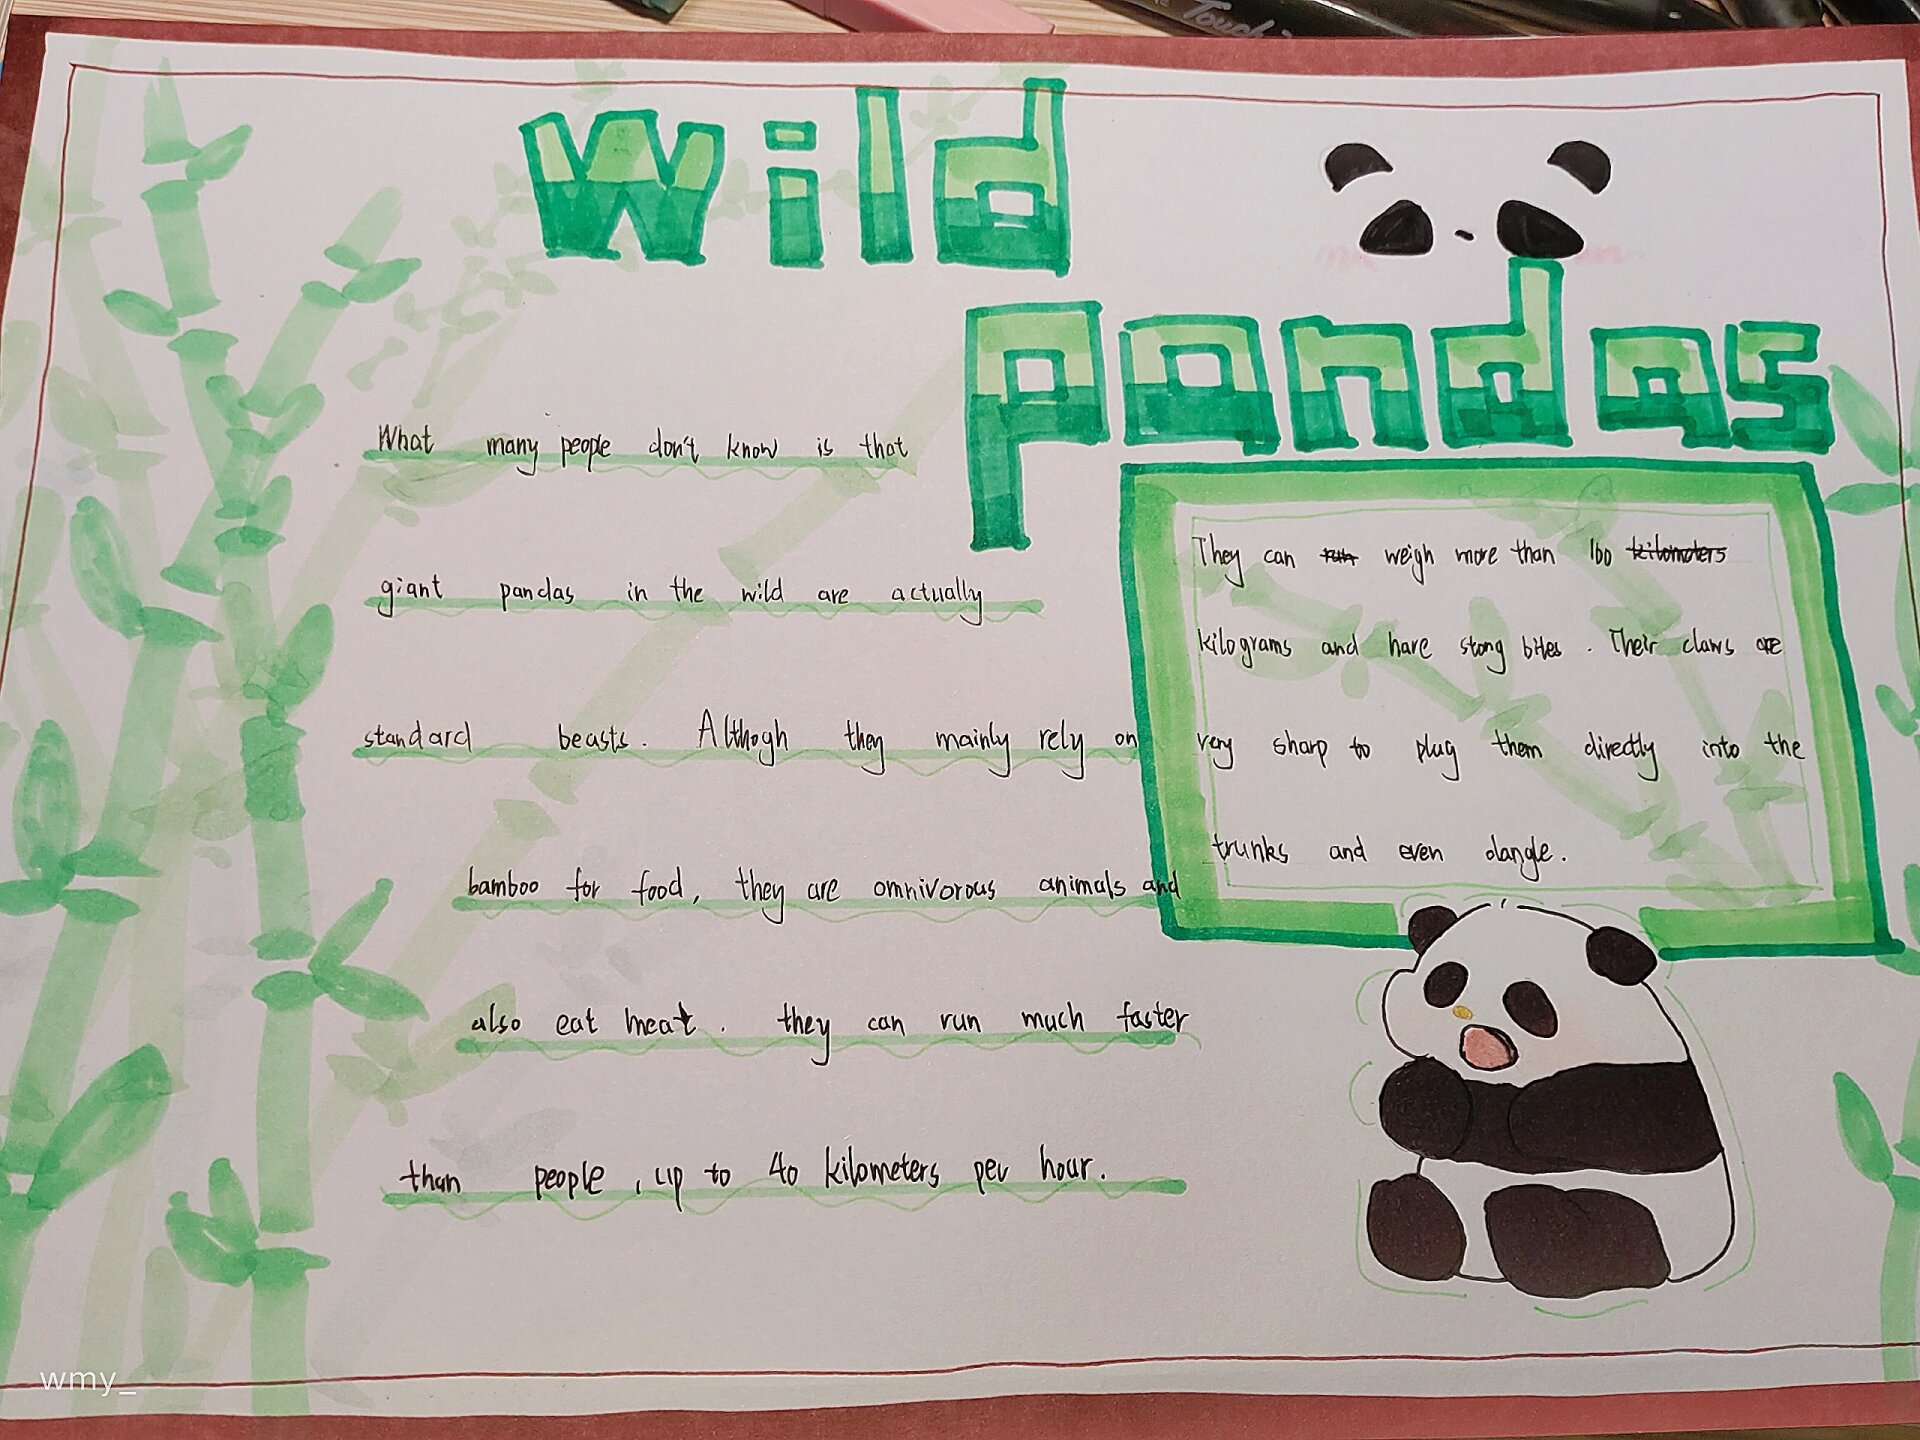 Touch
wild
pandas
What many people don't know is that
giant pandas in the wild are actually
standard beasts. Althogh they mainly rely on
bamboo for food, they are omnivorous animals and
also eat meat. they can run much faster
than people, up to 40 kilometers per hour.
They can run weigh more than 100 kilometers
kilograms and have stong bites. Their claws are
very sharp to plug them directly into the
trunks and even dangle.
wmy_